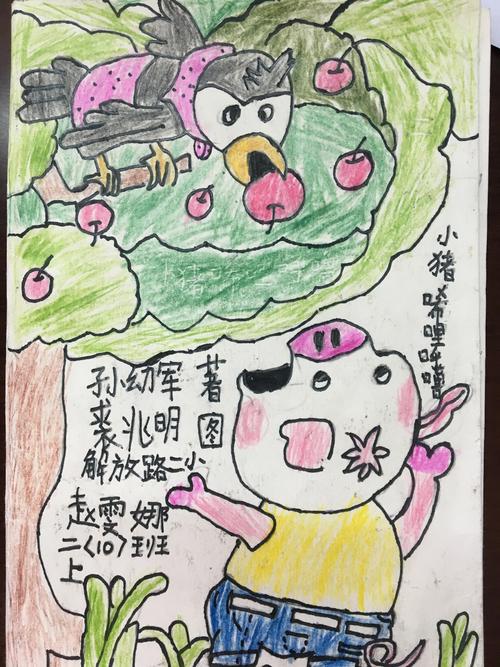 小猪唏哩呼噜
孙幼军 著
裘兆明 图
解放路二小
赵雯娜
二〈10〉班
上